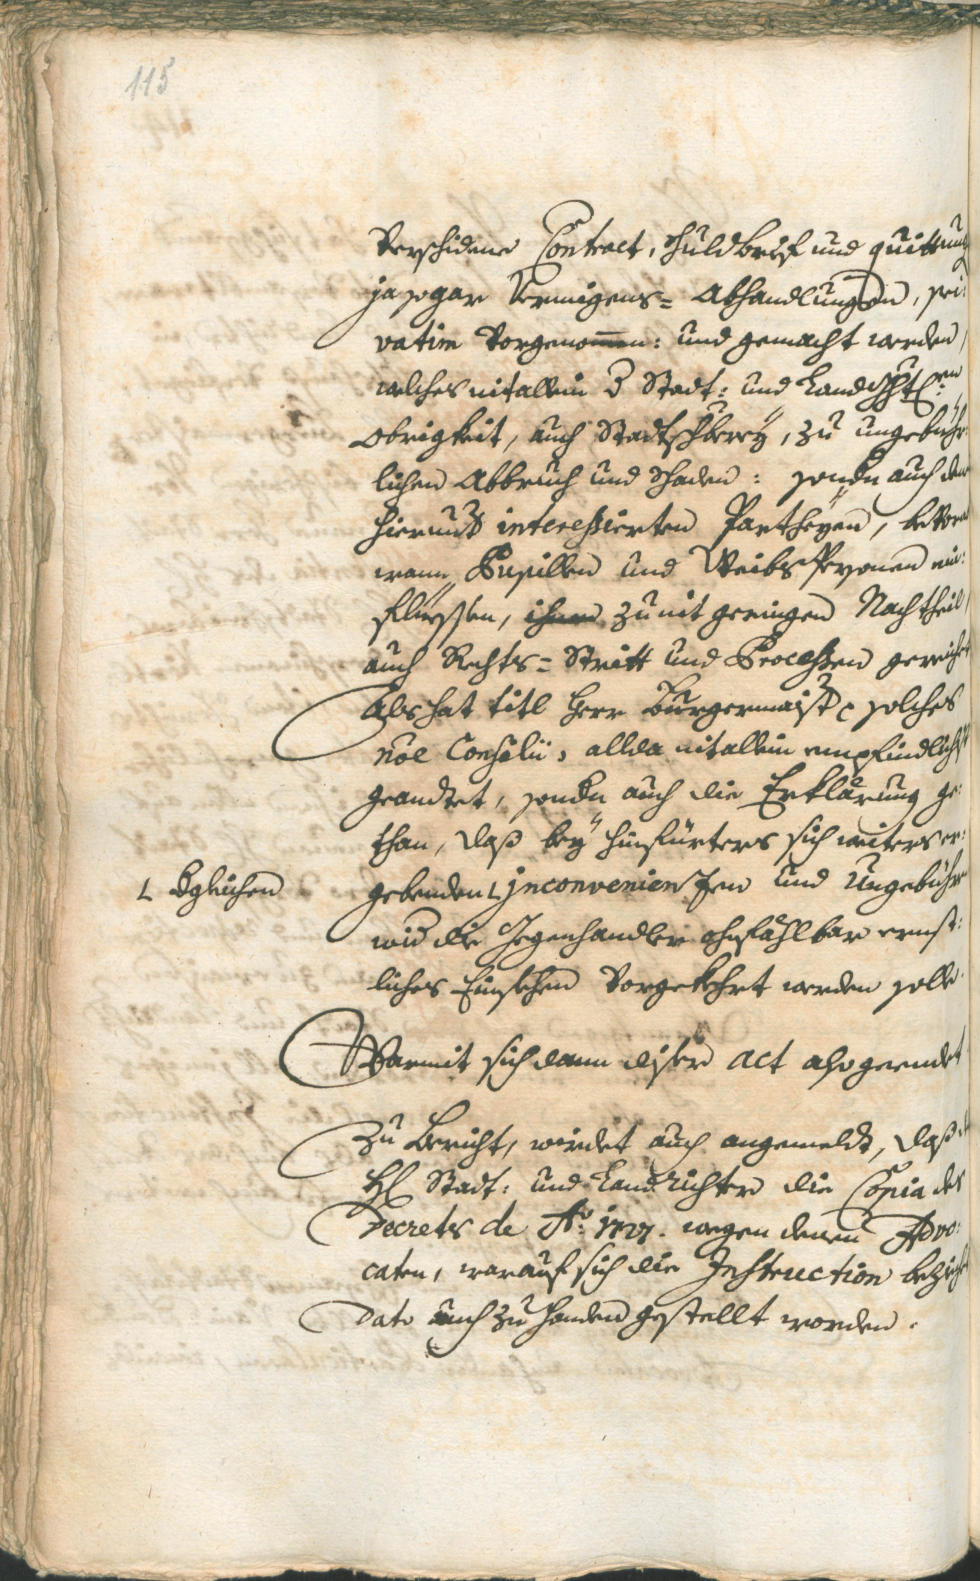 115
Verschidene Contract, schuldbrief und quittung
ja sogar Vermögens= Abhandlungen, pri¬
vatim Vorgenommen: und gemacht werden,
welches nit allein d Stadt: und Landtgchtl:en
Obrigkeit, auch Stadtschreiberey, zu ungebühr¬
lichen Abbruch und schaden: sondern auch denen
hierundter interessierten Partheyen, bevorab
wann Pupillen und Weibs Persohnen ein¬
fliessen, ihnen zu nit geringen Nachtheil,
auch Rechts= Stritt und Processen gereichet
Als hat titl Herr Burgermaister solches
nōe Consilii, allda nit allein empfindlichst
geandtet, sondern auch die Erklärung ge¬
than, daß bey hinfürters sich weiters er¬
└ dgleichen
gebenden └ jnconvenienzen und Ungebühr
wider die Gegenhandler ohnfählbar ernst¬
liches Einsehen Vorgekhert werden solle.
Warmit sich dann diser Act also geendet
Zu Bericht, wirdet auch angemeldt, daß
H Stadt: und Landrichter die Copia des
Decrets de Ao: wegen denen Advo¬
caten, worauf sich die Instruction beziehet
Dato auch zu handen gestellt worden.